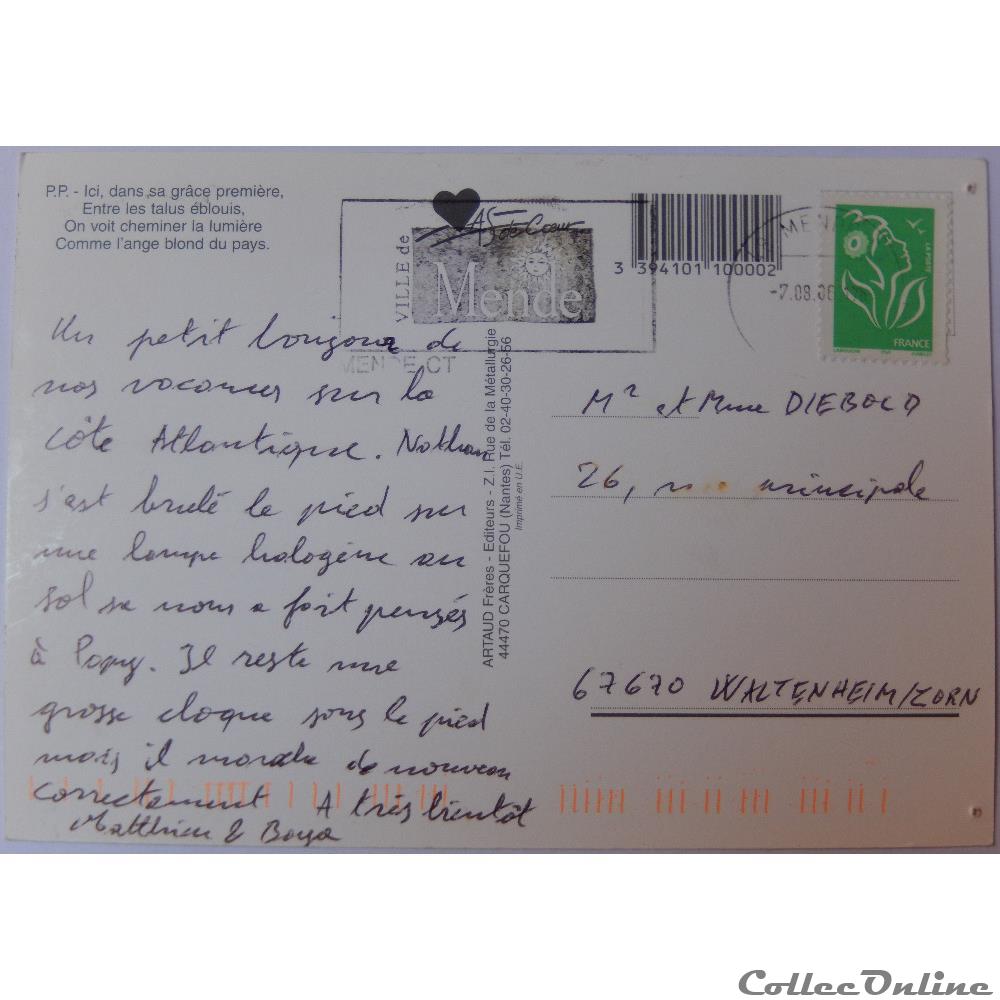 P.P. - Ici, dans sa grâce première,
Entre les talus éblouis,
On voit cheminer la lumière
Comme l'ange blond du pays.
VILLE de
AS de Coeur
Mende
MENDE CT
3 394101 100002
MENDE
-7.08.06
LA POSTE
FRANCE
Un petit bonjour de
nos vacances sur la
côte Atlantique. Nathan
s'est brulé le pied sur
une lampe halogène au
sol sa nous a fait pensés
à Papy. Il reste une
grosse cloque sous le pied
mais il marche de nouveau
correctement A très bientôt
Matthieu &
ARTAUD Frères - Editeurs - Z.I. Rue de la Métallurgie
44470 CARQUEFOU (Nantes) Tél. 02-40-30-26-56
Imprimé en U.E.
Mr et Mme DIEBOLD
26, rue principale
67670 WALTENHEIM/ZORN
CollecOnline